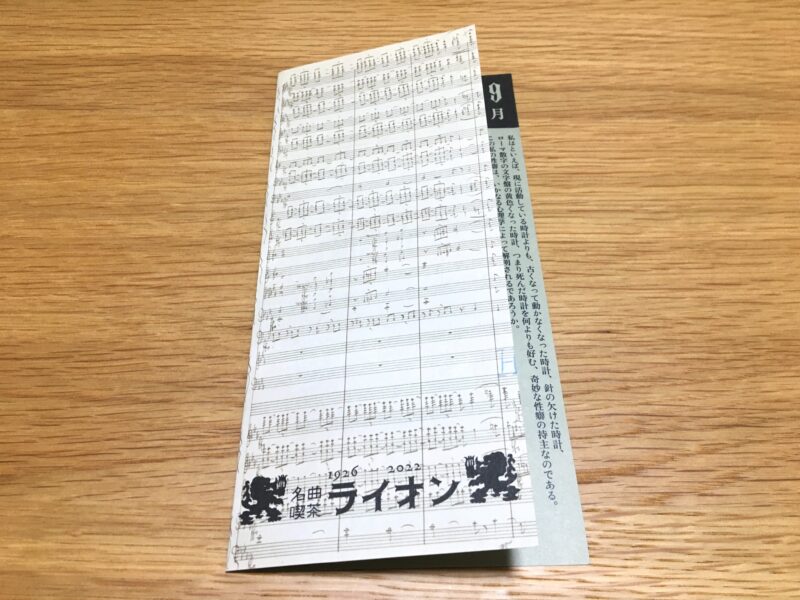 9
月
私はといえば、現に活動している時計よりも、古くなって動かなくなった時計、針の欠けた時計、
ローマ数字の文字盤の黄色くなった時計、つまり死んだ時計を何よりも好む、奇妙な性癖の持主なのである。
この私の性癖は、いかなる心理学によって解明されるであろうか。
1926 2022
名曲喫茶 ライオン